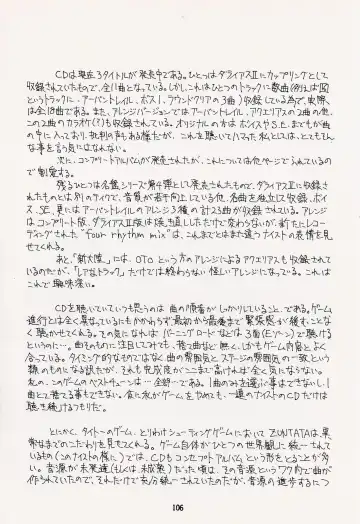 CDは現在3タイトルが発売中である。ひとつはダライアスⅡにカップリングとして
収録されていたもので、全11曲となっている。しかし、これはひとつのトラックに数曲(例えば図
というトラックに、アーバントレイル、ボス1、ラウンドクリアの3曲)収録している為で、実際、
は全18曲である。また、アレンジバージョンではアーバントレイル、アクエリアスの2曲と、他
この2曲のカラオケ(?)も収録されている。オリジナルの方はボイスやS.E.までもが曲
の中に入っており、批判の声もある様だが、これを聴いてハマった私としては、とてもそん
な事を言う気にはなれない。
次に、コンプリートアルバムが発売されたが、これについては他ページでふれているの
で割愛する。
残るひとつは名盤シリーズ第十弾として発売されたもので、ダライアスⅡに収録さ
れたものとは別のテイクで、音質が若干向上している他、各曲を独立収録、ボイ
ス、SE、更にはアーバントレイルのアレンジ3種の計23曲が収録されている。アレンジ
はコンプリート版、ダライアスⅡ版は焼き直しただけで変わらないが、新たにレコー
ディングされた"four rhythm mix"は、これまでとはまた違うナイストの表情を見
せてくれる。
あと、「新大陸」には、OTOという方のアレンジによるアクエリアスも収録されて
いるのだが、「レアなトラック」だけでは終わらない怪しいアレンジになっている。これは
これで興味深い。
CDを聴いていていつも思うのは曲の順番がしっかりしていること、である。ゲーム
進行とは全く異なっているにもかかわらず、最初から最後まで緊張感が緩むことな
く聴かせてくれる。その気になれば、バーニングロードなどは3番(Eゾーン)で聴ける
というのに…。曲そのものに注目してみても、捨て曲など無く、しかもゲーム内容とよく
合っている。タイミング的なものではなく曲の雰囲気とステージの雰囲気の一致という
類のものになる訳だが、それも完成度がここまで高ければ全く気にならない。
私の、このゲームのベストチューンは…全部…である。1曲のみを選ぶ事はできないし、1
曲として捨てる事もできない。仮に永がゲームを、やめても、一連のナイストのCDだけは
聴き続けるつもりだ。
とにかく、タイトーのゲーム、とりわけシューティングゲームにおいてZUNTATAは、異
常なまでのこだわりを見せてくれる。ゲーム自体がひとつの世界観に統一されて
いるもの(このナイストの様に)では、CDもコンセプトアルバムという形をとることが多
い。音源が未発達(もしくは、未成熟)だった頃は、その音源というワク内で曲が
作られていたので、それだけで充分統一されていたのだが、音源の進歩するにつ
106